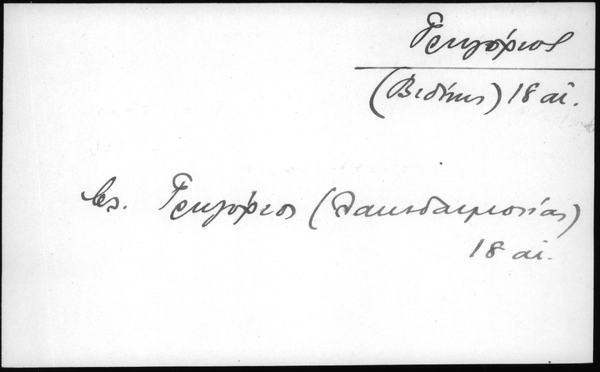 Γρηγόριος
(Βιδίνης) 18 αἰ.
βλ. Γρηγόριος (Λακεδαιμονίας)
18 αἰ.